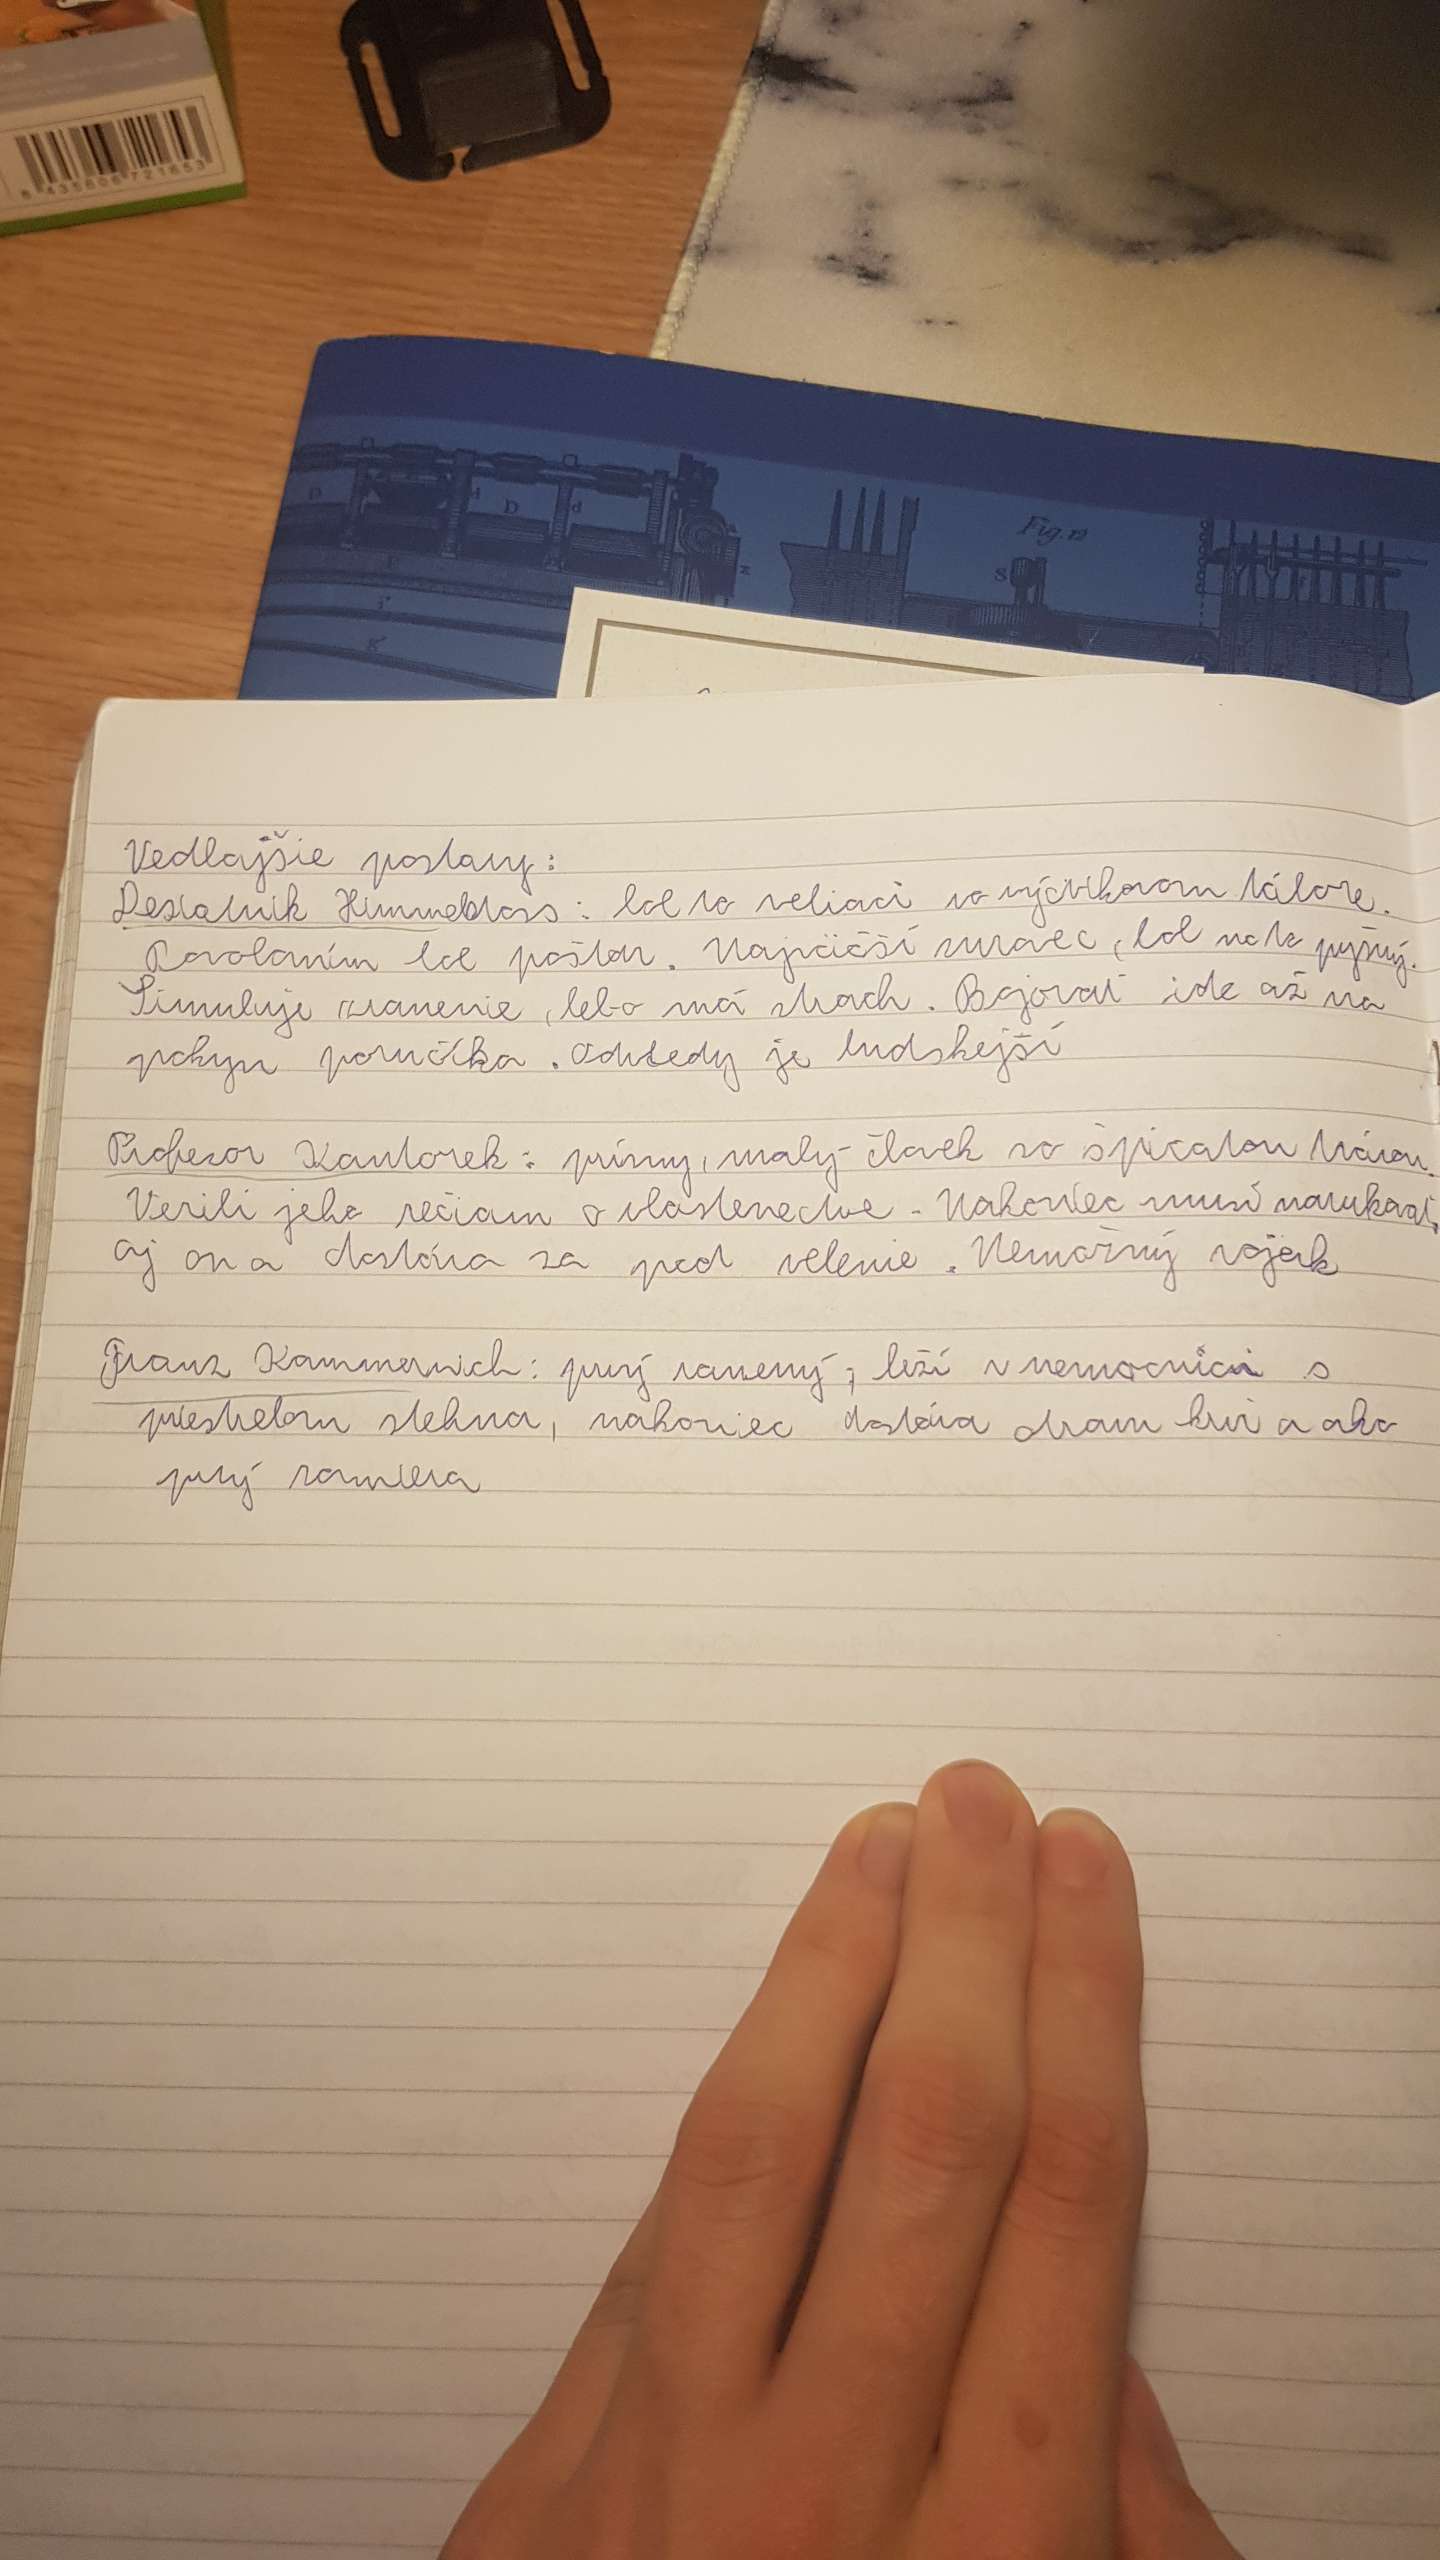 8 435606 721653
D
d
D
d
Fig. 12
S
Vedlajšie postavy:
Desiatnik Himmelstoss: bol to veliaci vo výcvikovom tábore.
Povolaním bol poštár. Najväčší surovec, bol na to pyšný.
Simuluje zranenie, lebo má strach. Bojovať ide až na
pokyn poručíka. Odvtedy je ludskejší
Profesor Kantorek: prísny, malý človek so špicatou tvárou.
Verili jeho rečiam o vlastenectve. Nakoniec musí narukovať
aj on a dostáva sa pod velenie. Nemožný vojak
Franz Kammerich: prvý ranený, leží v nemocnici s
priestrelom stehna, nakoniec dostáva chram krvi a ako
prvý zomiera